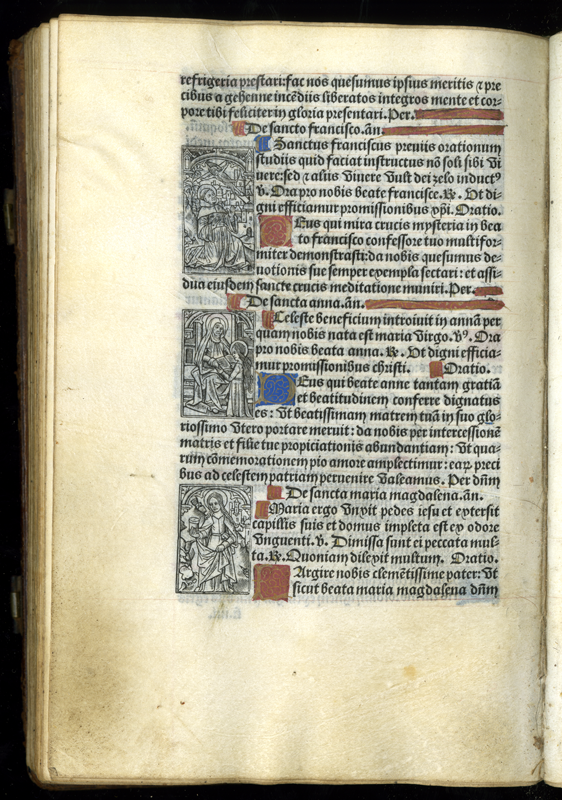 refrigeria prestari: fac nos quesumus ipsius meritis ⁊ pre
cibus a gehenne incēdiis liberatos integros mente et cor-
pore tibi feliciter in gloria presentari. Per.
De sancto francisco. añ.
Sanctus franciscus previis orationum
studiis quid faciat instructus nō soli sibi vi
vere: sed ⁊ aliis vivere vult dei zelo induct⁹
v. Ora pro nobis beate francisce. ℟. Ut di-
gni efficiamur promissionibus xp̄i. Oratio.
Deus qui mira crucis mysteria in bea
to francisco confessore tuo multifor-
miter demonstrasti: da nobis quesumus de-
uotionis sue semper exempla sectari: et assi-
dua eiusdem sancte crucis meditatione muniri. Per.
De sancta anna. añ.
Celeste beneficium introiuit in annam per
quam nobis nata est maria virgo. v⁹. Ora
pro nobis beata anna. ℟. Ut digni efficia-
mur promissionibus christi. Oratio.
Deus qui beate anne tantam gratiā
et beatitudinem conferre dignatus
es: vt beatissimam matrem tuā in suo glo-
riosissimo vtero portare meruit: da nobis per intercessionē
matris et filie tue propiciationis abundantiam: vt qua-
rum cōmemorationem pio amore amplectimur: earꝝ preci
bus ad celestem patriam peruenire valeamus. Per dn̄m
De sancta maria magdalena. añ.
Maria ergo vnxit pedes iesu et extersit
capillis suis et domus impleta est ex odore
vnguenti. v. Dimissa sunt ei peccata mul-
ta. ℟. Quoniam dilexit multum. Oratio.
Largire nobis clemētissime pater: vt
sicut beata maria magdalena dn̄m